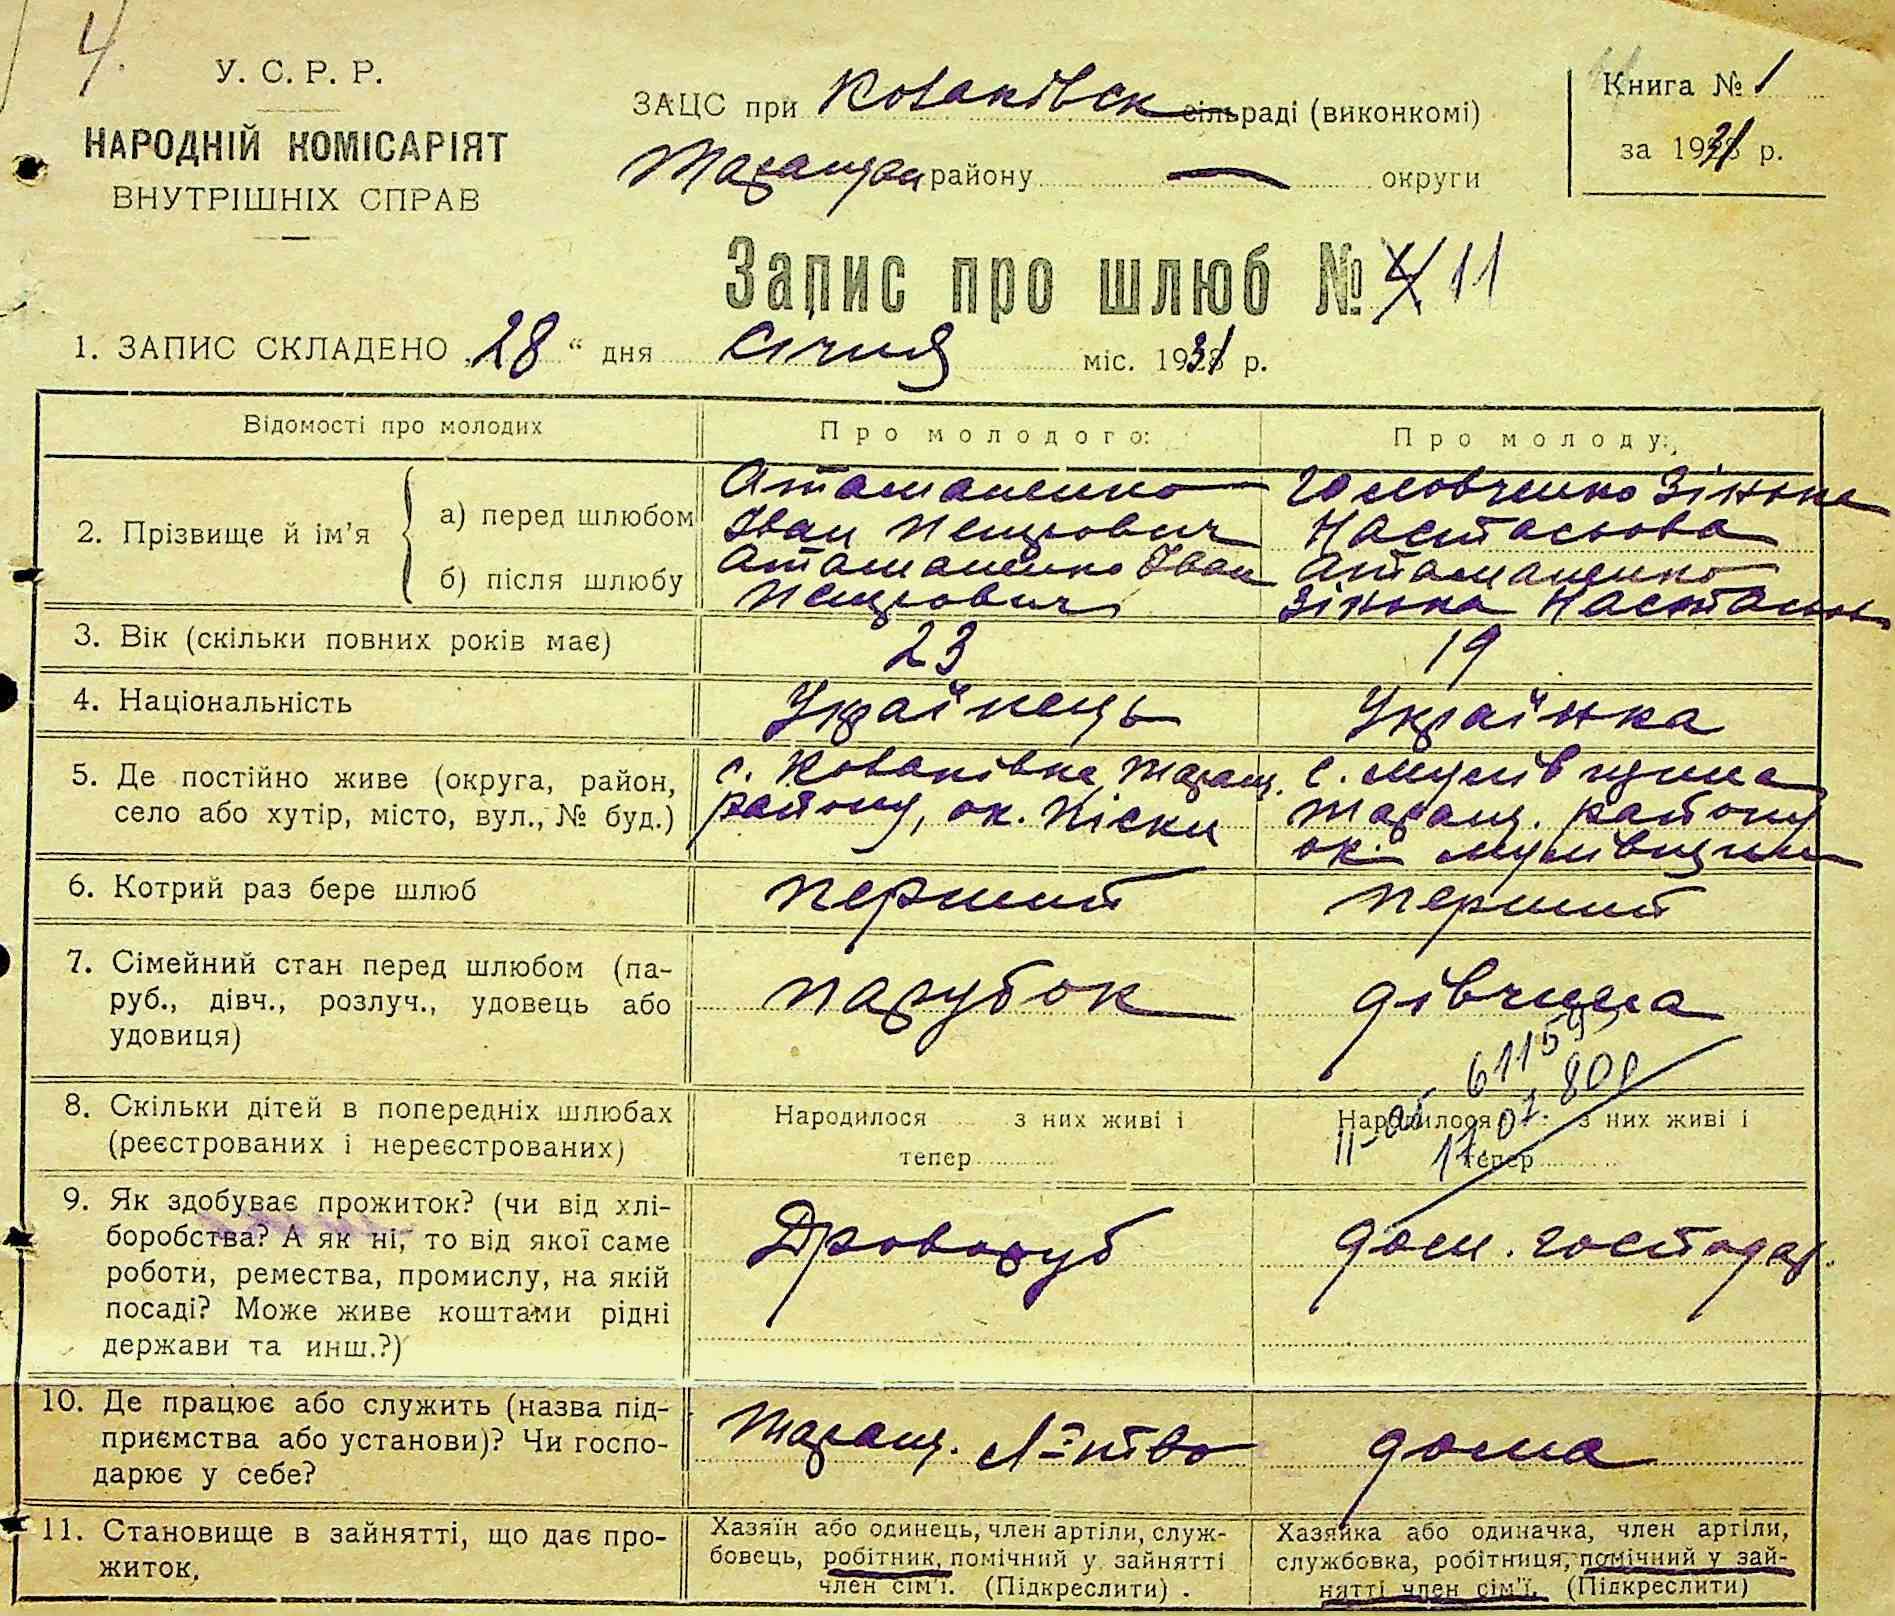 4.
У. С. Р. Р.
НАРОДНІЙ КОМІСАРІЯТ
ВНУТРІШНІХ СПРАВ
ЗАЦС при Ковалівськ сільраді (виконкомі)
Таращан району — округи
Книга № 1
за 1931 р.
Запис про шлюб № 11
1. ЗАПИС СКЛАДЕНО „28“ дня січня міс. 1931 р.
Відомості про молодих
Про молодого:
Про молоду:
2. Прізвище й ім'я
а) перед шлюбом
Атаманенко
Іван Петрович
Головченко Зінька
Настасьова
б) після шлюбу
Атаманенко Іван
Петрович
Атаманенко
Зінька Настасьов
3. Вік (скільки повних років має)
23
19
4. Національність
Українець
Українка
5. Де постійно живе (округа, район,
село або хутір, місто, вул., № буд.)
с. Таращ.
району, ок. Піски
с.
Таращ. району
ок.
6. Котрий раз бере шлюб
перший
перший
7. Сімейний стан перед шлюбом (па-
руб., дівч., розлуч., удовець або
удовиця)
парубок
дівчина
8. Скільки дітей в попередніх шлюбах
(реєстрованих і нереєстрованих)
Народилося з них живі і
тепер
Народилося з них живі і
тепер
9. Як здобуває прожиток? (чи від хлі-
боробства? А як ні, то від якої саме
роботи, ремества, промислу, на якій
посаді? Може живе коштами рідні
держави та инш.?)
Дроворуб
дом. господар.
10. Де працює або служить (назва під-
приємства або установи)? Чи госпо-
дарює у себе?
Таращ. Л-цтво
дома
11. Становище в зайнятті, що дає про-
житок,
Хазяїн або одинець, член артіли, служ-
бовець, робітник, помічний у зайнятті
член сім'ї. (Підкреслити).
Хазяйка або одиначка, член артіли,
службовка, робітниця, помічний у зай-
нятті член сім'ї. (Підкреслити)